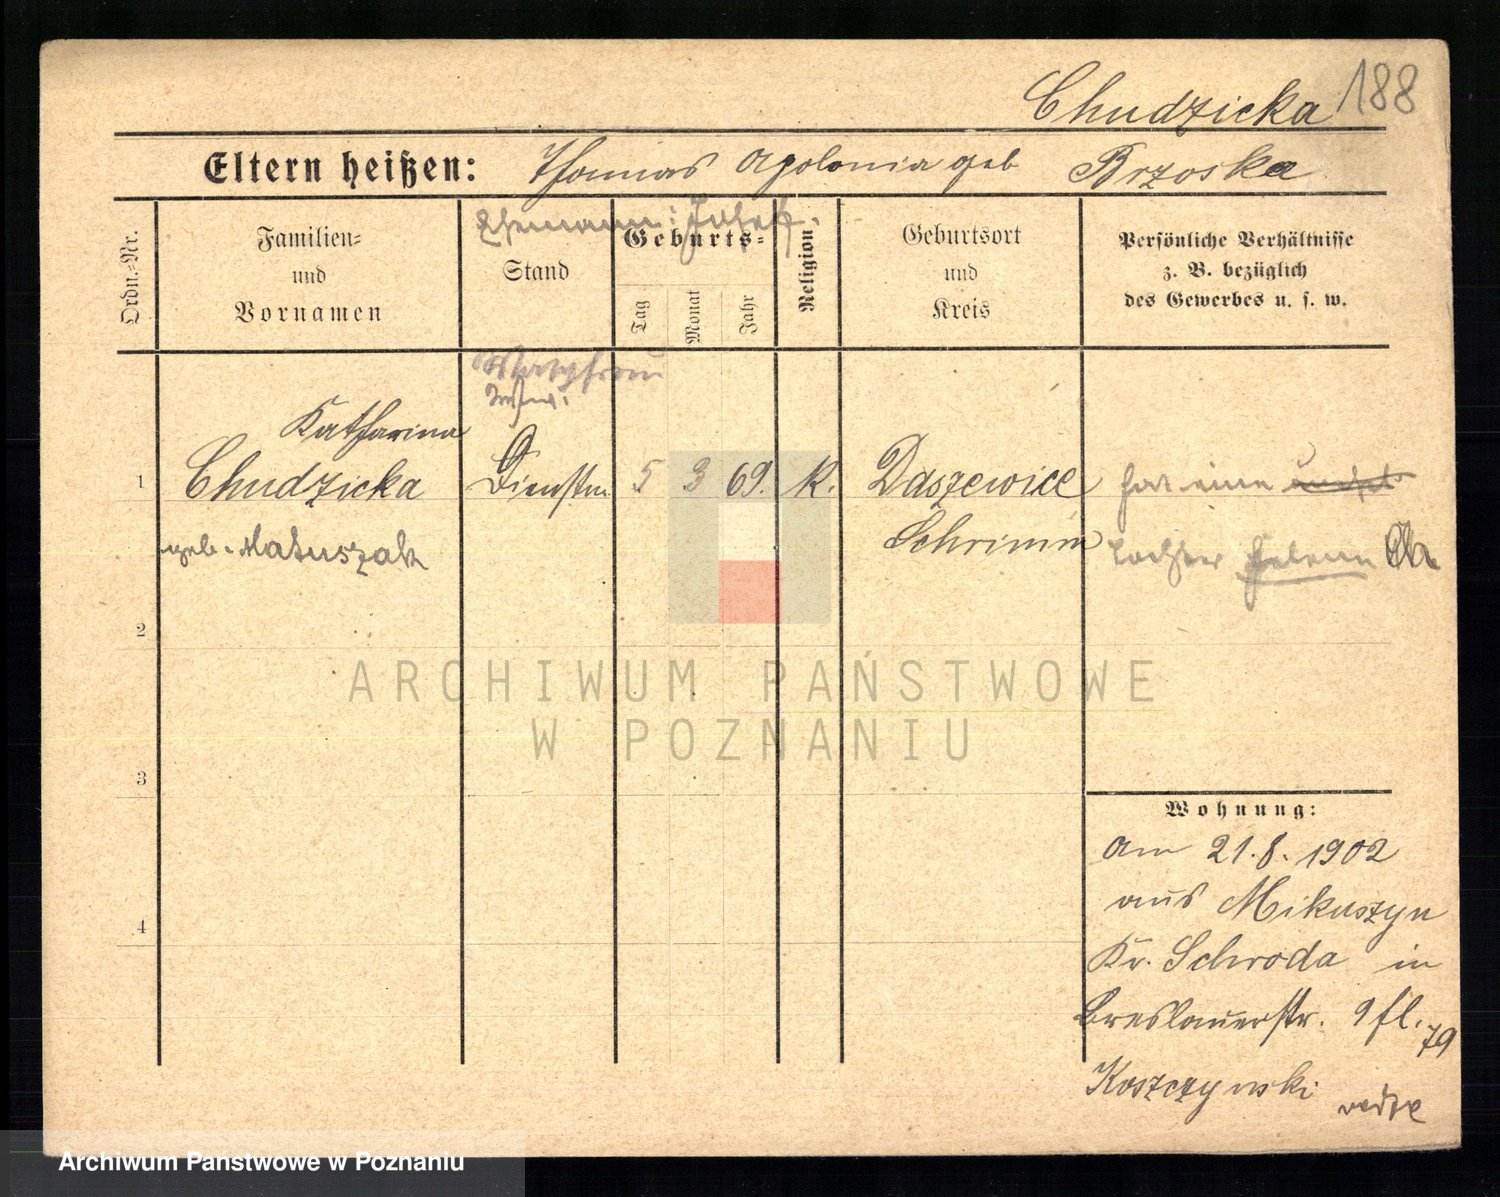 Chudzicka 188
Eltern heißen: Thomas Apolonia geb Brzoska
Ehemann: Josef
Ordn.-Nr.
Familien-
und
Vornamen
Stand
Geburts-
Tag
Monat
Jahr
Religion
Geburtsort
und
Kreis
Persönliche Verhältnisse
z. B. bezüglich
des Gewerbes u. s. w.
Waschfrau
Katharina
1 Chudzicka Dienstm 5 3 69. K. Daszewice hat eine
geb. Matuszak Schrimm Tochter Helene
2
ARCHIWUM PAŃSTWOWE
W POZNANIU
3
Wohnung:
am 21.8.1902
aus Mikuszyn
4
Kr. Schroda in
Breslauerstr. 9 fl. 79
Koszczynski
Archiwum Państwowe w Poznaniu